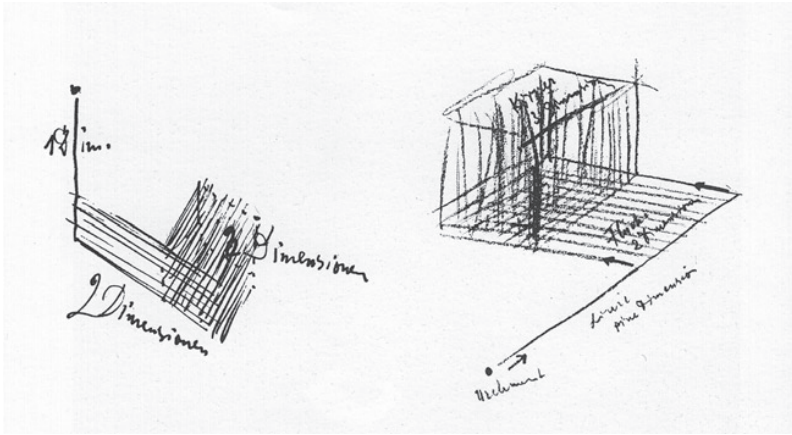 1 Dim.
2 Dimensionen
2 Dimensionen
Körper
3 Dimension
Fläche
2 Dimension
Linie
eine Dimension
Urelement